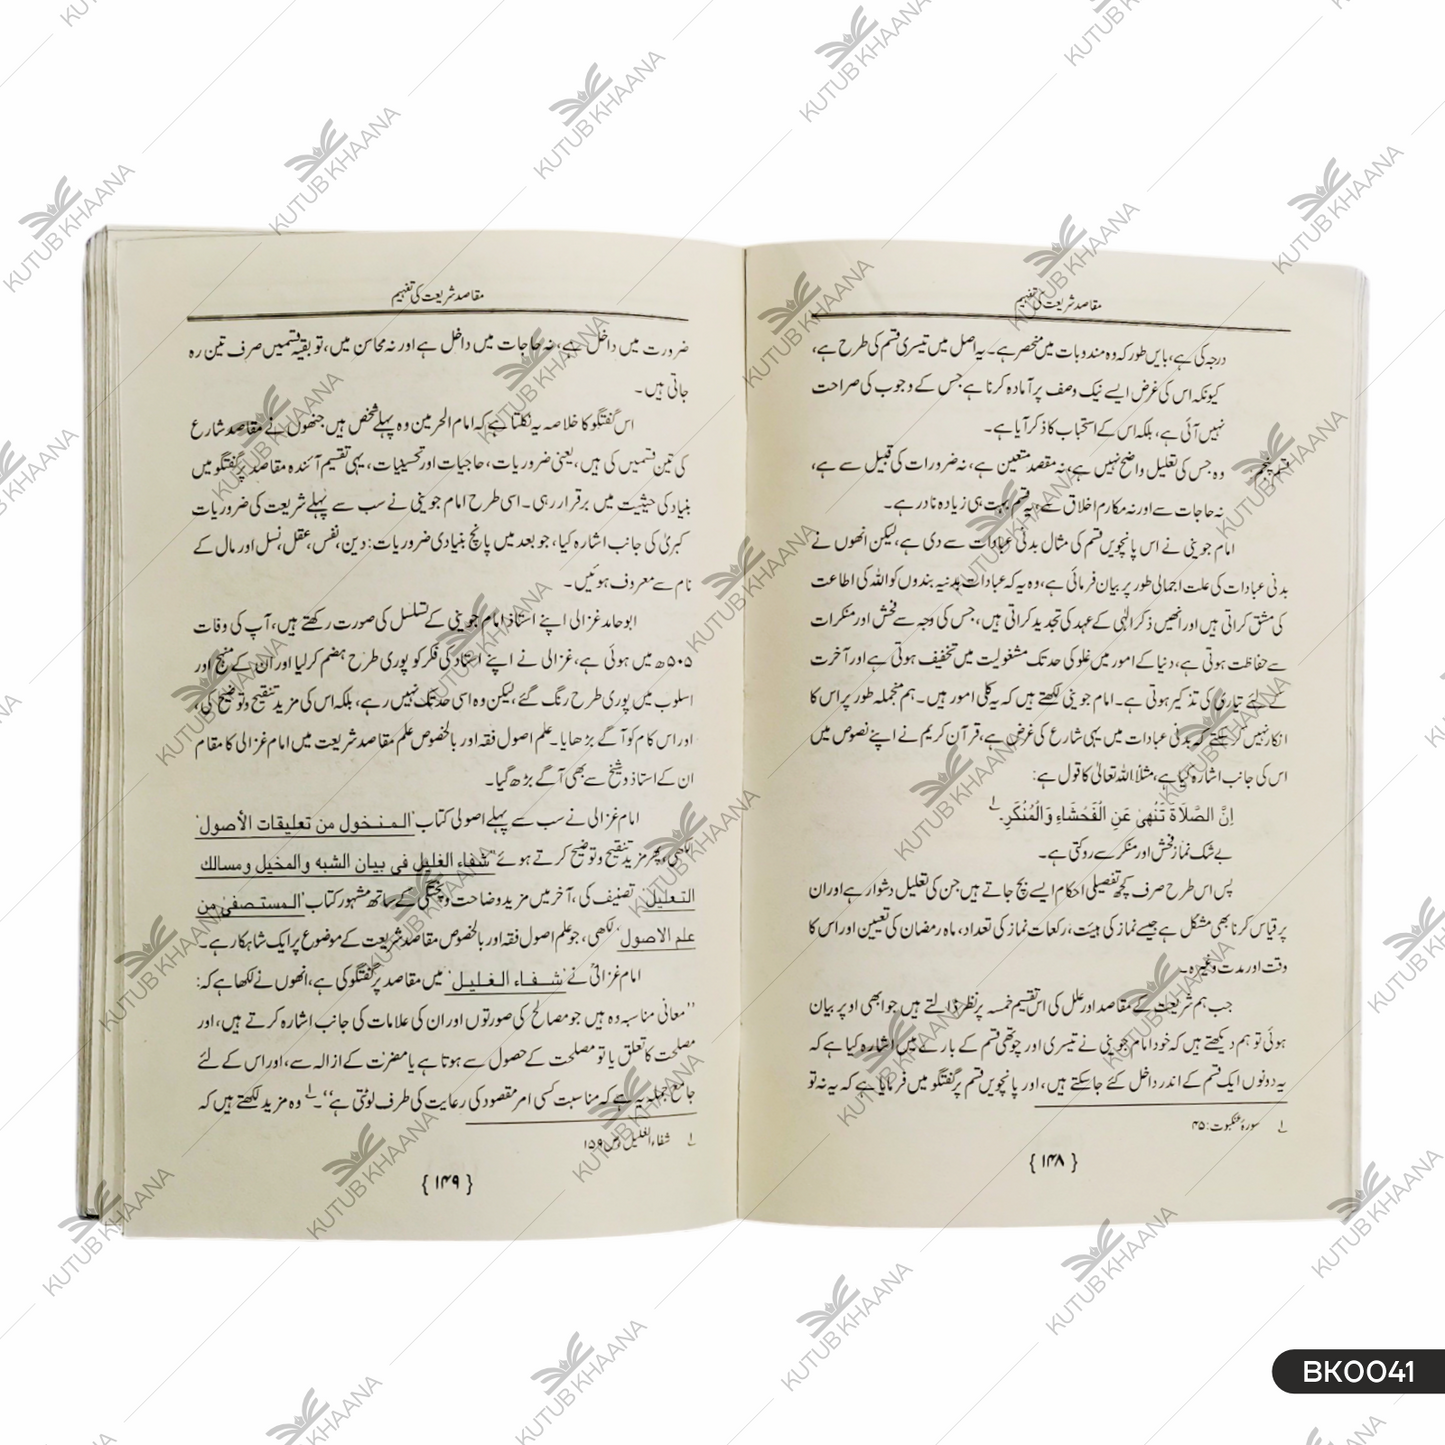 مقاصد شریعت کی تفہیم
درجہ کی ہے، بایں طور کہ وہ مندوبات میں منحصر ہے۔ یہ اصل میں تیسری قسم کی طرح ہے،
کیونکہ اس کی غرض ایسے نیک وصف پر آمادہ کرنا ہے جس کے وجوب کی صراحت
نہیں آئی ہے، بلکہ اس کے استحباب کا ذکر آیا ہے۔
قسم پنجم: وہ جس کی تعلیل واضح نہیں ہے، نہ مقصد متعین ہے، نہ ضرورات کی قبیل سے ہے،
نہ حاجات سے اور نہ مکارم اخلاق سے، یہ قسم بہت ہی زیادہ نادر ہے۔
امام جوینی نے اس پانچویں قسم کی مثال بدنی عبادات سے دی ہے، لیکن انھوں نے
بدنی عبادات کی علت اجمالی طور پر بیان فرمائی ہے، وہ یہ کہ عبادات بدنیہ بندوں کو اللہ کی اطاعت
کی مشق کراتی ہیں اور انھیں ذکر الٰہی کے عہد کی تجدید کراتی ہیں، جس کی وجہ سے فحش اور منکرات
سے حفاظت ہوتی ہے، دنیا کے امور میں غلو کی حد تک مشغولیت میں تخفیف ہوتی ہے اور آخرت
کے لئے تیاری کی تذکیر ہوتی ہے۔ امام جوینی لکھتے ہیں کہ یہ کلی امور ہیں۔ ہم منجملہ طور پر اس کا
انکار نہیں کر سکتے کہ بدنی عبادات میں یہی شارع کی غرض ہے، قرآن کریم نے اپنے نصوص میں
اس کی جانب اشارہ کیا ہے، مثلاً اللہ تعالیٰ کا قول ہے:
اِنَّ الصَّلَاۃَ تَنۡھیٰ عَنِ الۡفَحۡشَاءِ وَالۡمُنۡکَرِ۔ ۱
بے شک نماز فحش اور منکر سے روکتی ہے۔
پس اس طرح صرف کچھ تفصیلی احکام ایسے بچ جاتے ہیں جن کی تعلیل دشوار ہے اور ان
پر قیاس کرنا بھی مشکل ہے جیسے نماز کی ہیئت، رکعات نماز کی تعداد، ماہ رمضان کی تعیین اور اس کا
وقت اور مدت وغیرہ۔
جب ہم شریعت کے مقاصد اور علل کی اس تقسیم خمسہ پر نظر ڈالتے ہیں جو ابھی اوپر بیان
ہوئی تو ہم دیکھتے ہیں کہ خود امام جوینی نے تیسری اور چوتھی قسم کے بارے میں اشارہ کیا ہے کہ
یہ دونوں ایک قسم کے اندر داخل کئے جا سکتے ہیں، اور پانچویں قسم پر گفتگو میں فرمایا ہے کہ یہ نہ تو
۱ سورۂ عنکبوت: ۴۵
{ ۱۴۸ }
مقاصد شریعت کی تفہیم
ضرورت میں داخل ہے، نہ حاجات میں داخل ہے اور نہ محاسن میں، تو بقیہ قسمیں صرف تین رہ
جاتی ہیں۔
اس گفتگو کا خلاصہ یہ نکلتا ہے کہ امام الحرمین وہ پہلے شخص ہیں جنھوں نے مقاصد شارع
کی تین قسمیں کی ہیں، یعنی ضروریات، حاجیات اور تحسینیات، یہی تقسیم آئندہ مقاصد پر گفتگو میں
بنیاد کی حیثیت میں برقرار رہی۔ اسی طرح امام جوینی نے سب سے پہلے شریعت کی ضروریات
کبریٰ کی جانب اشارہ کیا، جو بعد میں پانچ بنیادی ضروریات: دین، نفس، عقل، نسل اور مال کے
نام سے معروف ہوئیں۔
ابو حامد غزالی اپنے استاذ امام جوینی کے تسلسل کی صورت رکھتے ہیں، آپ کی وفات
۵۰۵ھ میں ہوئی ہے، غزالی نے اپنے استاد کی فکر کو پوری طرح ہضم کر لیا اور ان کے منہج اور
اسلوب میں پوری طرح رنگ گئے، لیکن وہ اسی حد تک نہیں رہے، بلکہ اس کی مزید تنقیح و توضیح کی،
اور اس کام کو آگے بڑھایا۔ علم اصول فقہ اور بالخصوص علم مقاصد شریعت میں امام غزالی کا مقام
ان کے استاذ و شیخ سے بھی آگے بڑھ گیا۔
امام غزالی نے سب سے پہلے اصولی کتاب "المنخول من تعلیقات الأصول"
لکھی، پھر مزید تنقیح و توضیح کرتے ہوئے "شفاء الغلیل فی بیان الشبہ والمخیل ومسالك
التعلیل" تصنیف کی، آخر میں مزید وضاحت و پختگی کے ساتھ مشہور کتاب "المستصفیٰ من
علم الاصول" لکھی، جو علم اصول فقہ اور بالخصوص مقاصد شریعت کے موضوع پر ایک شاہکار ہے۔
امام غزالیؒ نے "شفاء الغلیل" میں مقاصد پر گفتگو کی ہے، انھوں نے لکھا ہے کہ:
''معانی مناسبہ وہ ہیں جو مصالح کی صورتوں اور ان کی علامات کی جانب اشارہ کرتے ہیں، اور
مصلحت کا تعلق یا تو مصلحت کے حصول سے ہوتا ہے یا مضرت کے ازالہ سے، اور اس کے لئے
جامع جملہ یہ ہے کہ مناسبت کسی امر مقصود کی رعایت کی طرف لوٹتی ہے''۔ ۱ وہ مزید لکھتے ہیں کہ
۱ شفاء الغلیل، ص ۱۵۹
{ ۱۴۹ }
KUTUB KHAANA
BK0041